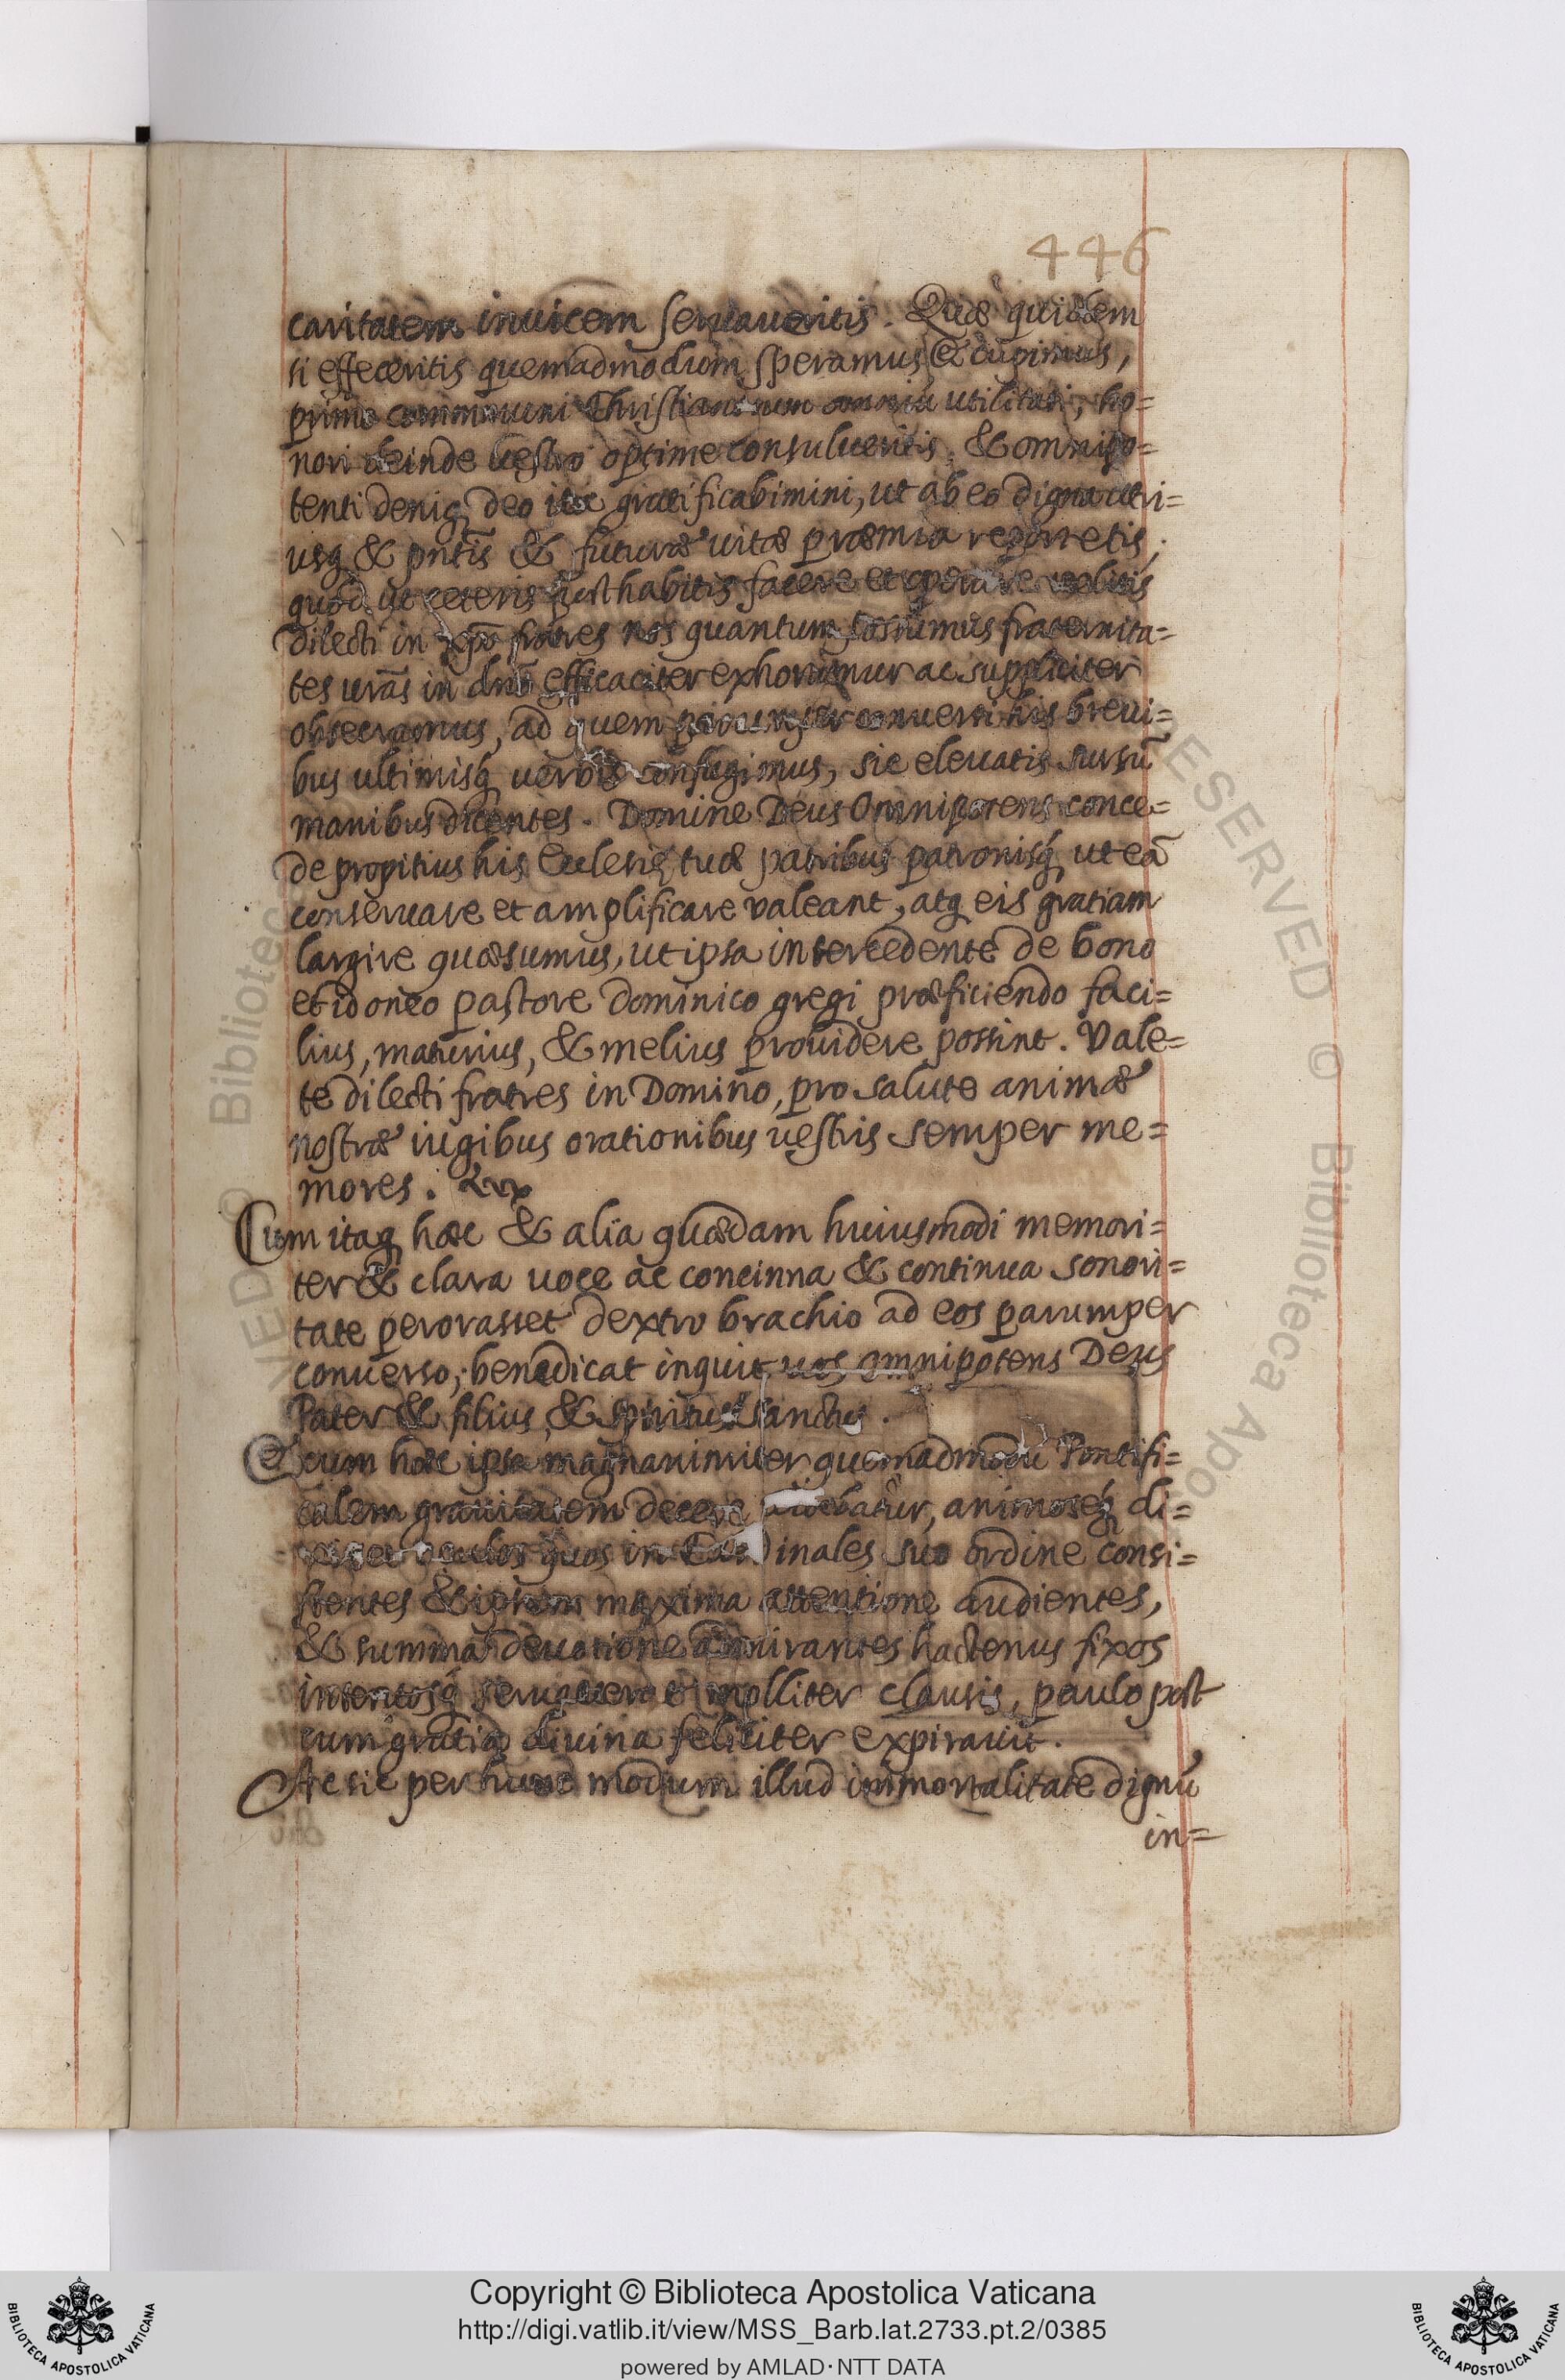 446
caritatem invicem servaueritis. Quæ quidem
si effeceritis quemadmodum speramus & cupimus,
primo communi Christianorum omniũ utilitati, ho=
nori deinde vestro optime consulueritis, & omnipo=
tenti deniq deo ita gratificabimini, ut ab eo digna utri=
usq & pñtis & futuræ uitæ præmia reportetis;
quod ut ceteris posthabitis facere et operare uelitis
dilecti in xpõ fratres nos quantum possumus fraternita=
tes urãs in dnõ efficaciter exhortamur ac suppliciter
obsecramus, ad quem parumper conuersi his breui=
bus ultimisq uerbis confugimus, sic eleuatis sursũ
manibus dicentes. Domine Deus Omnipotens conce=
de propitius his Ecclesię tuæ patribus patronisq ut eã
conseruare et amplificare valeant, atq eis gratiam
largire quæsumus, ut ipsa intercedente de bono
et idoneo pastore dominico gregi præficiendo faci=
lius, maturius, & melius prouidere possint. Vale=
te dilecti fratres in Domino, pro salute animæ
nostræ iugibus orationibus uestris semper me=
mores.
Cum itaq hæc & alia quædam huiusmodi memori=
ter & clara uoce ac concinna & continua sonori=
tate perorasset dextro brachio ad eos parumper
conuerso; benedicat inquit uos omnipotens Deus
Pater & filius, & spiritus sanctus.
Et cum hæc ipsa magnanimiter quemadmodũ Pontifi=
calem grauitatem decere uidebatur, animoseq di=
oculos quos in Cardinales suo ordine consi=
stentes & ipsum maxima attentione audientes,
& summa deuotione admirantes hactenus fixos
intentosq seruauerat molliter clausis, paulo post
cum gratia diuina feliciter expirauit.
Ac sic per hunc modum illud immortalitate dignũ
in=
Copyright © Biblioteca Apostolica Vaticana
http://digi.vatlib.it/view/MSS_Barb.lat.2733.pt.2/0385
powered by AMLAD·NTT DATA
BIBLIOTECA APOSTOLICA VATICANA
BIBLIOTECA APOSTOLICA VATICANA